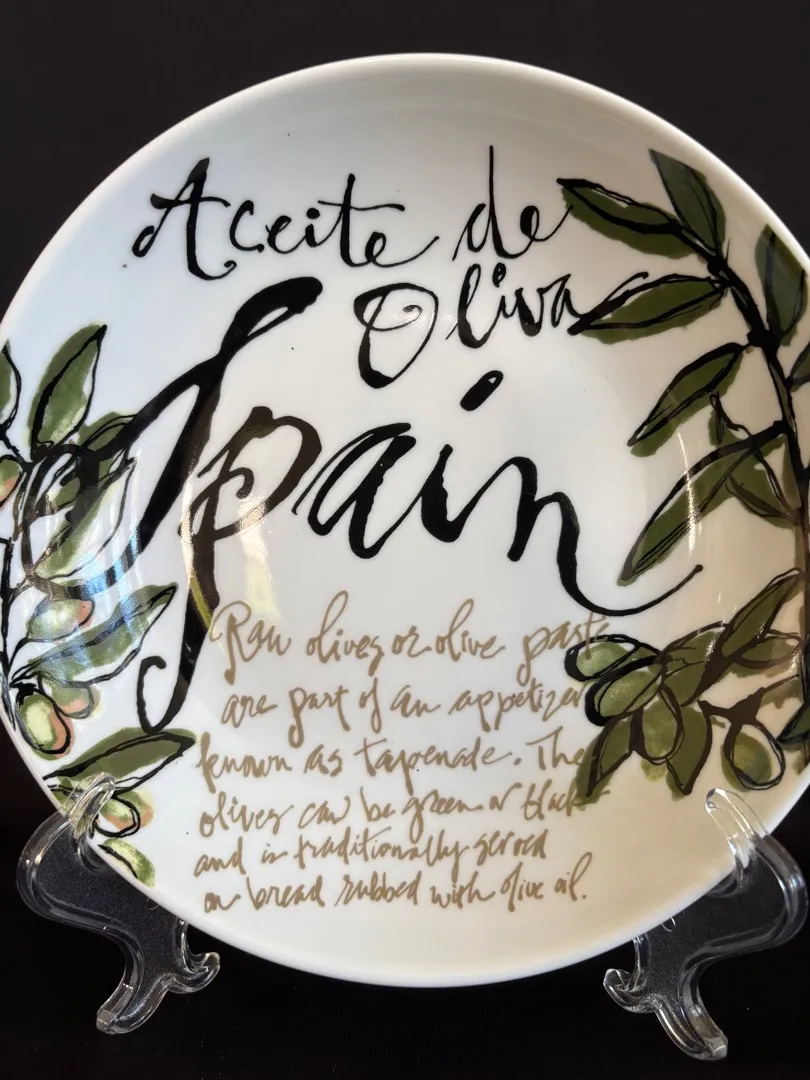 Aceite de
Oliva
Spain
Raw olives or olive paste
are part of an appetizer
known as tapenade. The
olives can be green or black
and is traditionally served
on bread rubbed with olive oil.